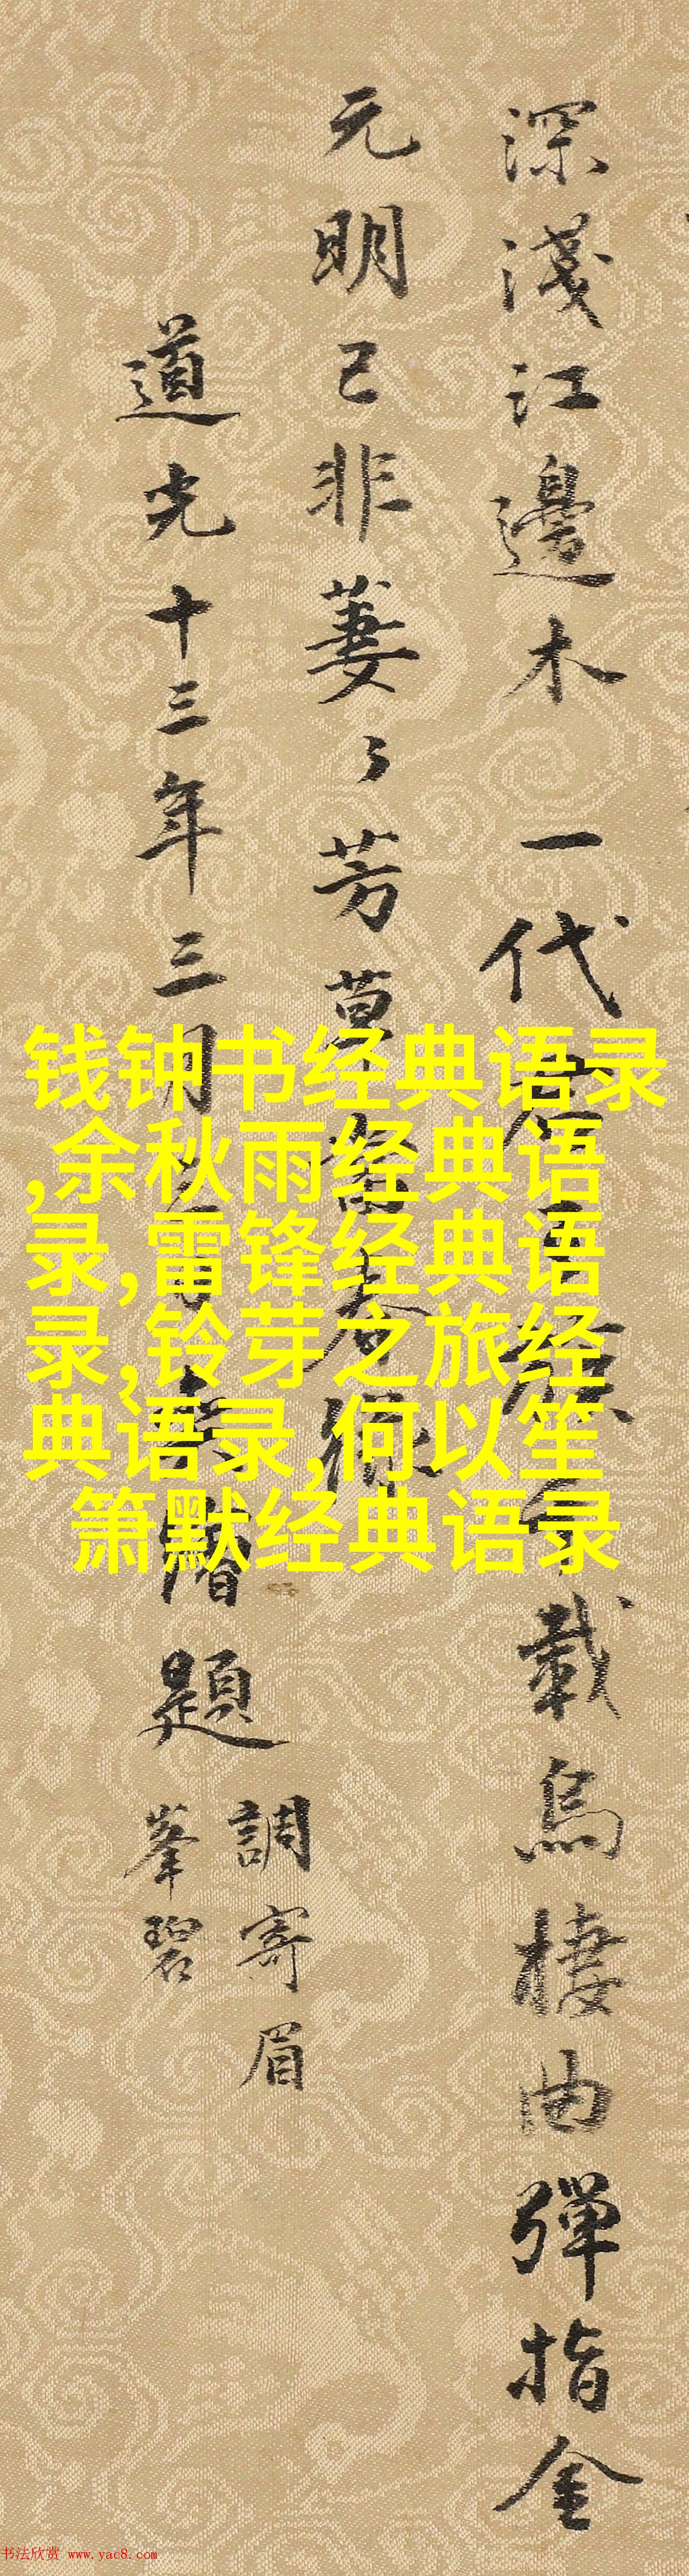 深淺江邊木一代
載烏棲曲彈指金
元明已非萋〻芳草
春
道光十三年三月
題
調寄眉
峯碧
钱钟书经典语录
,余秋雨经典语
录,雷锋经典语
录,铃芽之旅经
典语录,何以笙
箫默经典语录
书法欣赏 www.yac8.com